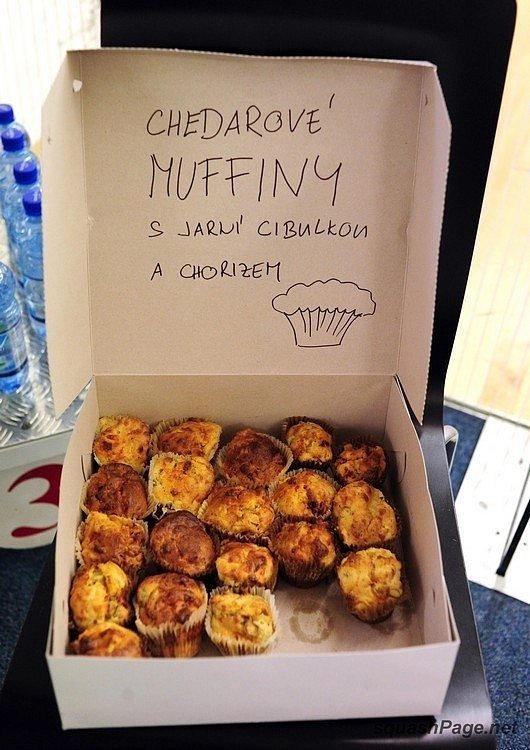 CHEDAROVÉ
MUFFINY
S JARNÍ CIBULKOU
A CHORIZEM
3
squashPage.net